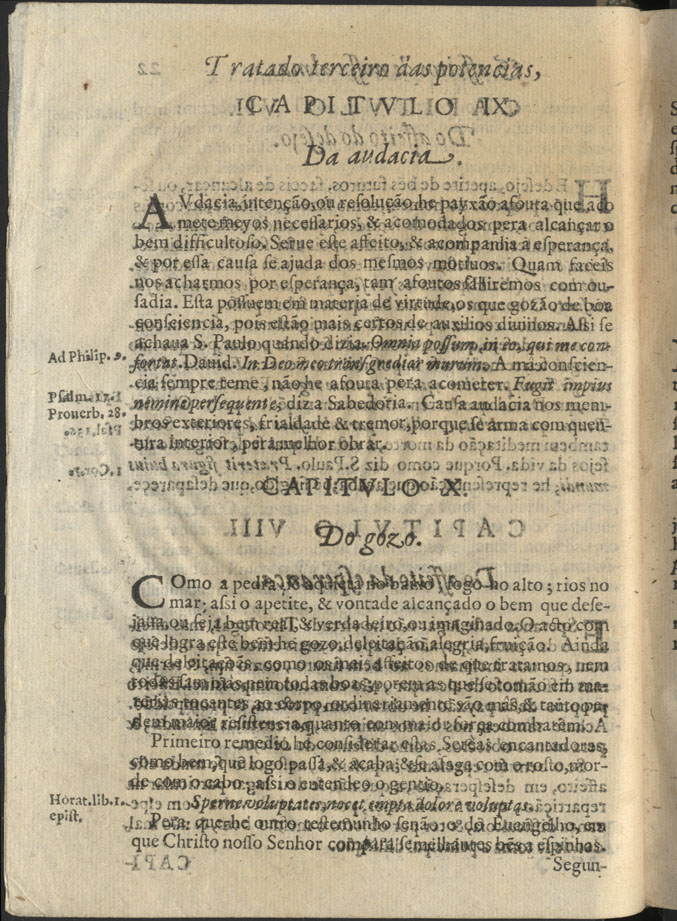 Tratado terceiro das potencias,
CAPITVLO IX.
Da audacia.
AVdacia, intenção, ou resolução, he payxão afouta que aco
mete meyos necessarios, & acomodados pera alcançar o
bem difficultoso. Serue este affeito, & acompanha a esperança,
& por essa causa se ajuda dos mesmos motiuos. Quam faceis
nos acharmos por esperança, tam afoutos sahiremos com ou-
sadia. Esta possuem em materia de virtude, os que gozão de boa
consciencia, pois estão mais certos de auxilios diuinos. Assi se
achaua S. Paulo quando dizia. Omnia possum in eo, qui me con
Ad Philip.
fortat. Dauid. In Deo meo transgrediar murum. A má conscien-
cia sempre teme, não he afouta pera acometer. Fugit impius
Psalm. 17.
Prouerb. 28.
nemine persequente, diz a Sabedoria. Causa audacia nos mem-
bros exteriores, frialdade & tremor, porque se arma com quen-
tura interior, pera melhor obrar.
CAPITVLO X.
Do gozo.
COmo a pedra se aquieta no baixo; fogo no alto; rios no
mar; assi o apetite, & vontade alcançado o bem que dese-
jaua, ou seja bem real, & verdadeiro, ou imaginado. O acto com
que logra este bem he gozo, deleitação, alegria, fruição. Ainda
que deleitações, como os mais affeitos de que tratamos, nem
todas sam más, nem todas boas; porem as que se tomão em ma-
terias tocantes ao corpo, ordinariamente são más, & tanto po-
dem maior resistencia, quanto com maior força combatem. A
Primeiro remedio he considerar estas Sereas encantadoras,
como bem, que logo passa, & acaba; & se afaga com o rosto, mor-
de com o cabo; assi o entendeo o gentio.
Horat. lib. 1.
epist.
Sperne voluptates, nocet empta dolore voluptas.
Pera que he outro testemunho senão o do Euangelho, em
que Christo nosso Senhor compara semelhantes bēs a espinhos.
Segun-